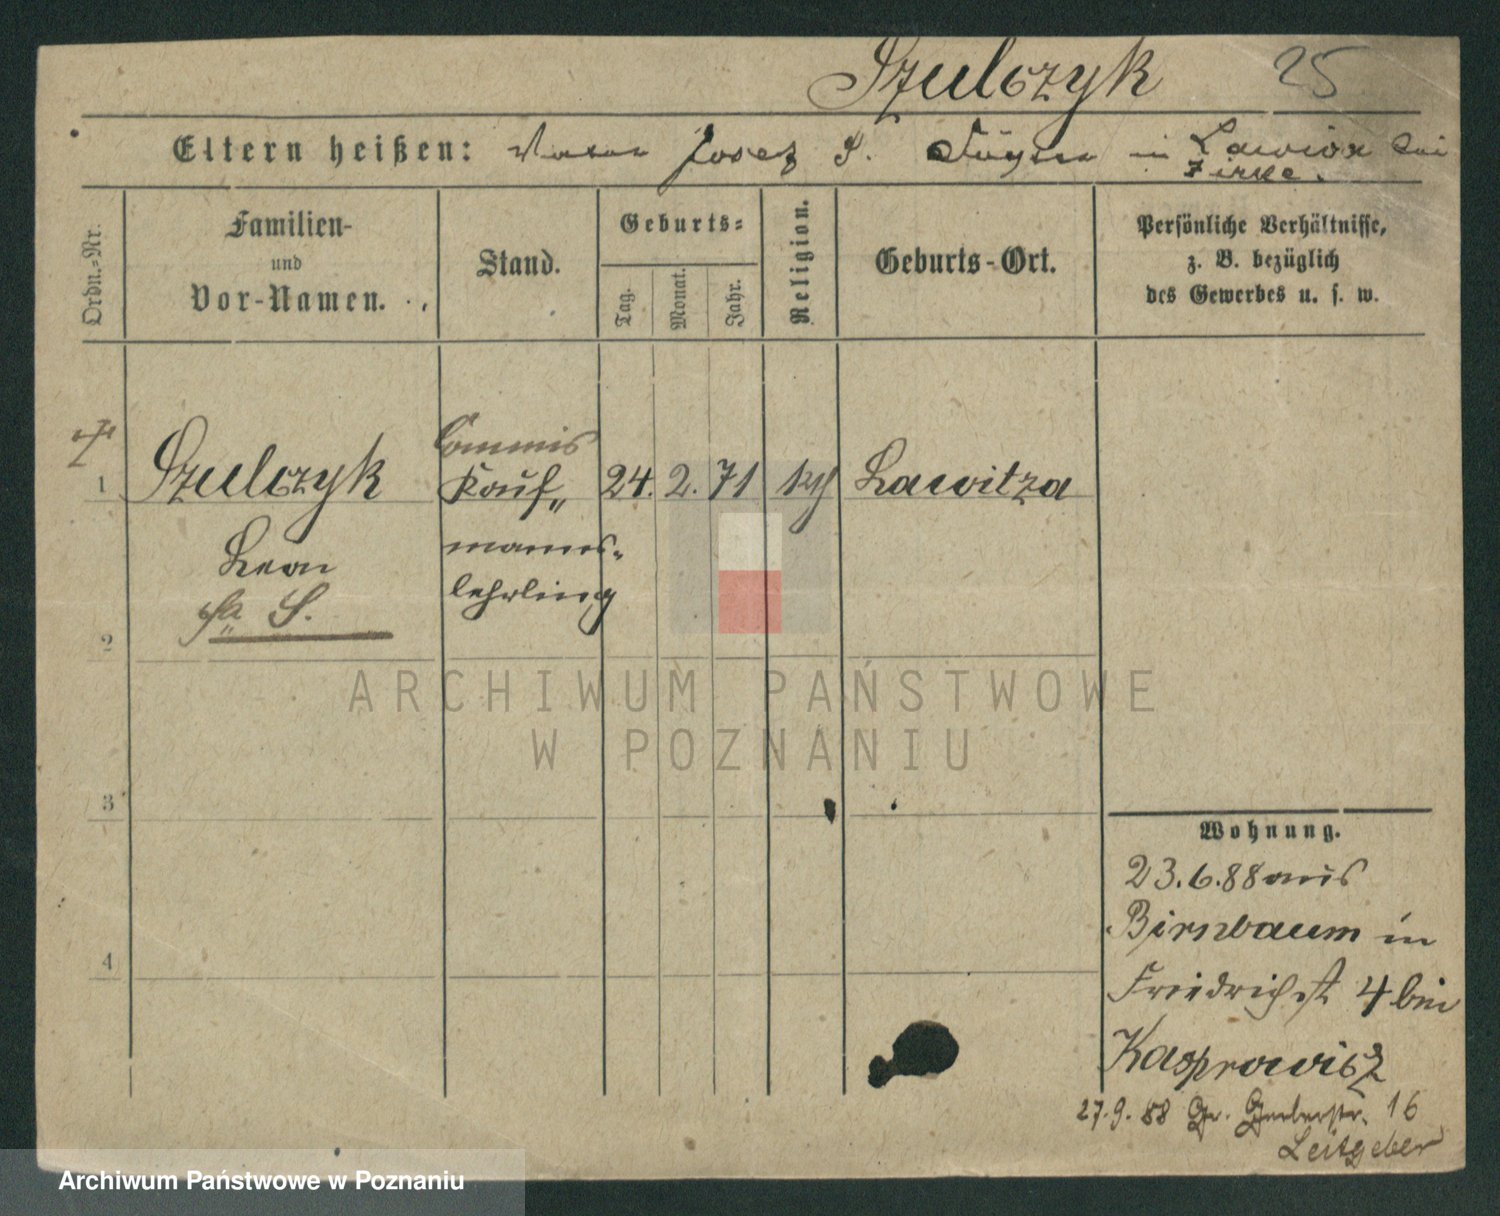 Szulczyk 25
Eltern heißen: Vater Josef S. in Lawica bei
Zirke.
Ordn.-Nr.
Familien-
und
Vor-Namen.
Stand.
Geburts-
Tag.
Monat.
Jahr.
Religion.
Geburts-Ort.
Persönliche Verhältnisse,
z. B. bezüglich
des Gewerbes u. s. w.
Commis
1 Szulczyk Kauf- 24. 2. 71 kth Lawitza
Leon manns-
S. lehrling
2
3
4
Wohnung.
23.6.88 aus
Birnbaum in
Friedrichst 4 bei
Kasprowicz
27.9.88 Gr. Gerberstr. 16
Leitgeber
ARCHIWUM PAŃSTWOWE
W POZNANIU
Archiwum Państwowe w Poznaniu